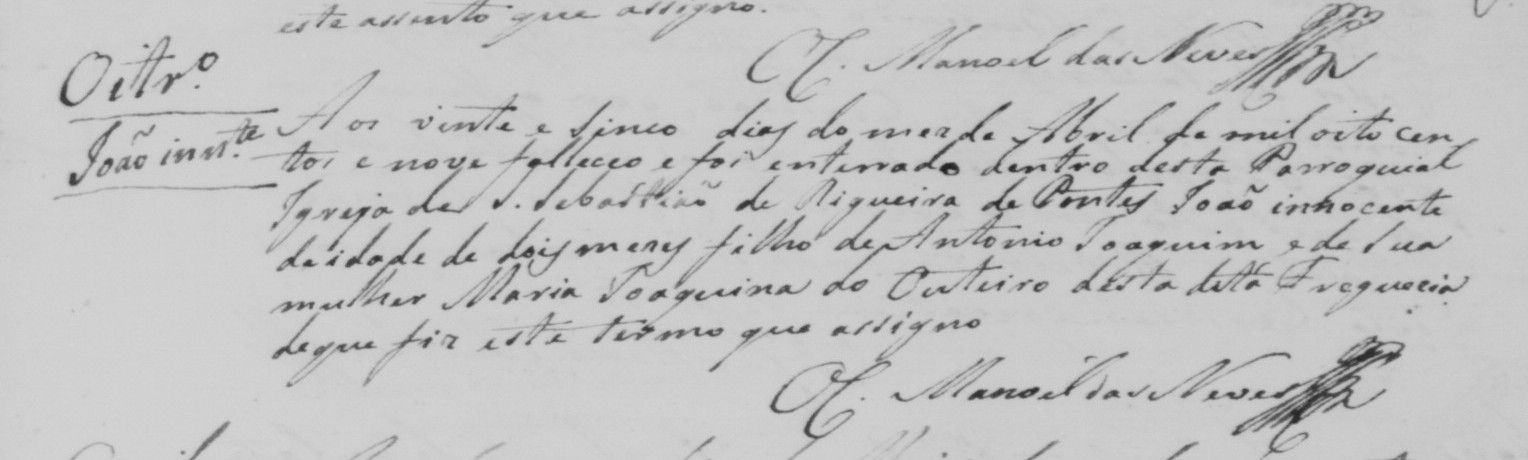 este assento que assigno.
Manoel das Neves
Oitr.º
João inn.te
Aos vinte e sinco dias do mez de Abril de mil oito cen
tos e nove falleceo e foi enterrado dentro desta Parroquial
Igreja de S. Sebastião de Rigueira de Pontes João innocente
de idade de dois mezes filho de Antonio Joaquim e de sua
mulher Maria Joaquina do Outeiro desta dita Freguecia
de que fiz este termo que assigno
Manoel das Neves